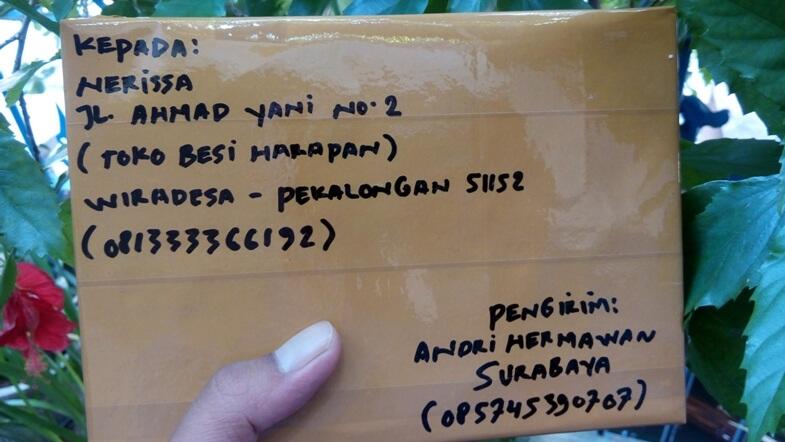 KEPADA:
NERISSA
JL. AHMAD YANI NO. 2
(TOKO BESI HARAPAN)
WIRADESA - PEKALONGAN 51152
(081333366192)
PENGIRIM:
ANDRI HERMAWAN
SURABAYA
(085745390707)